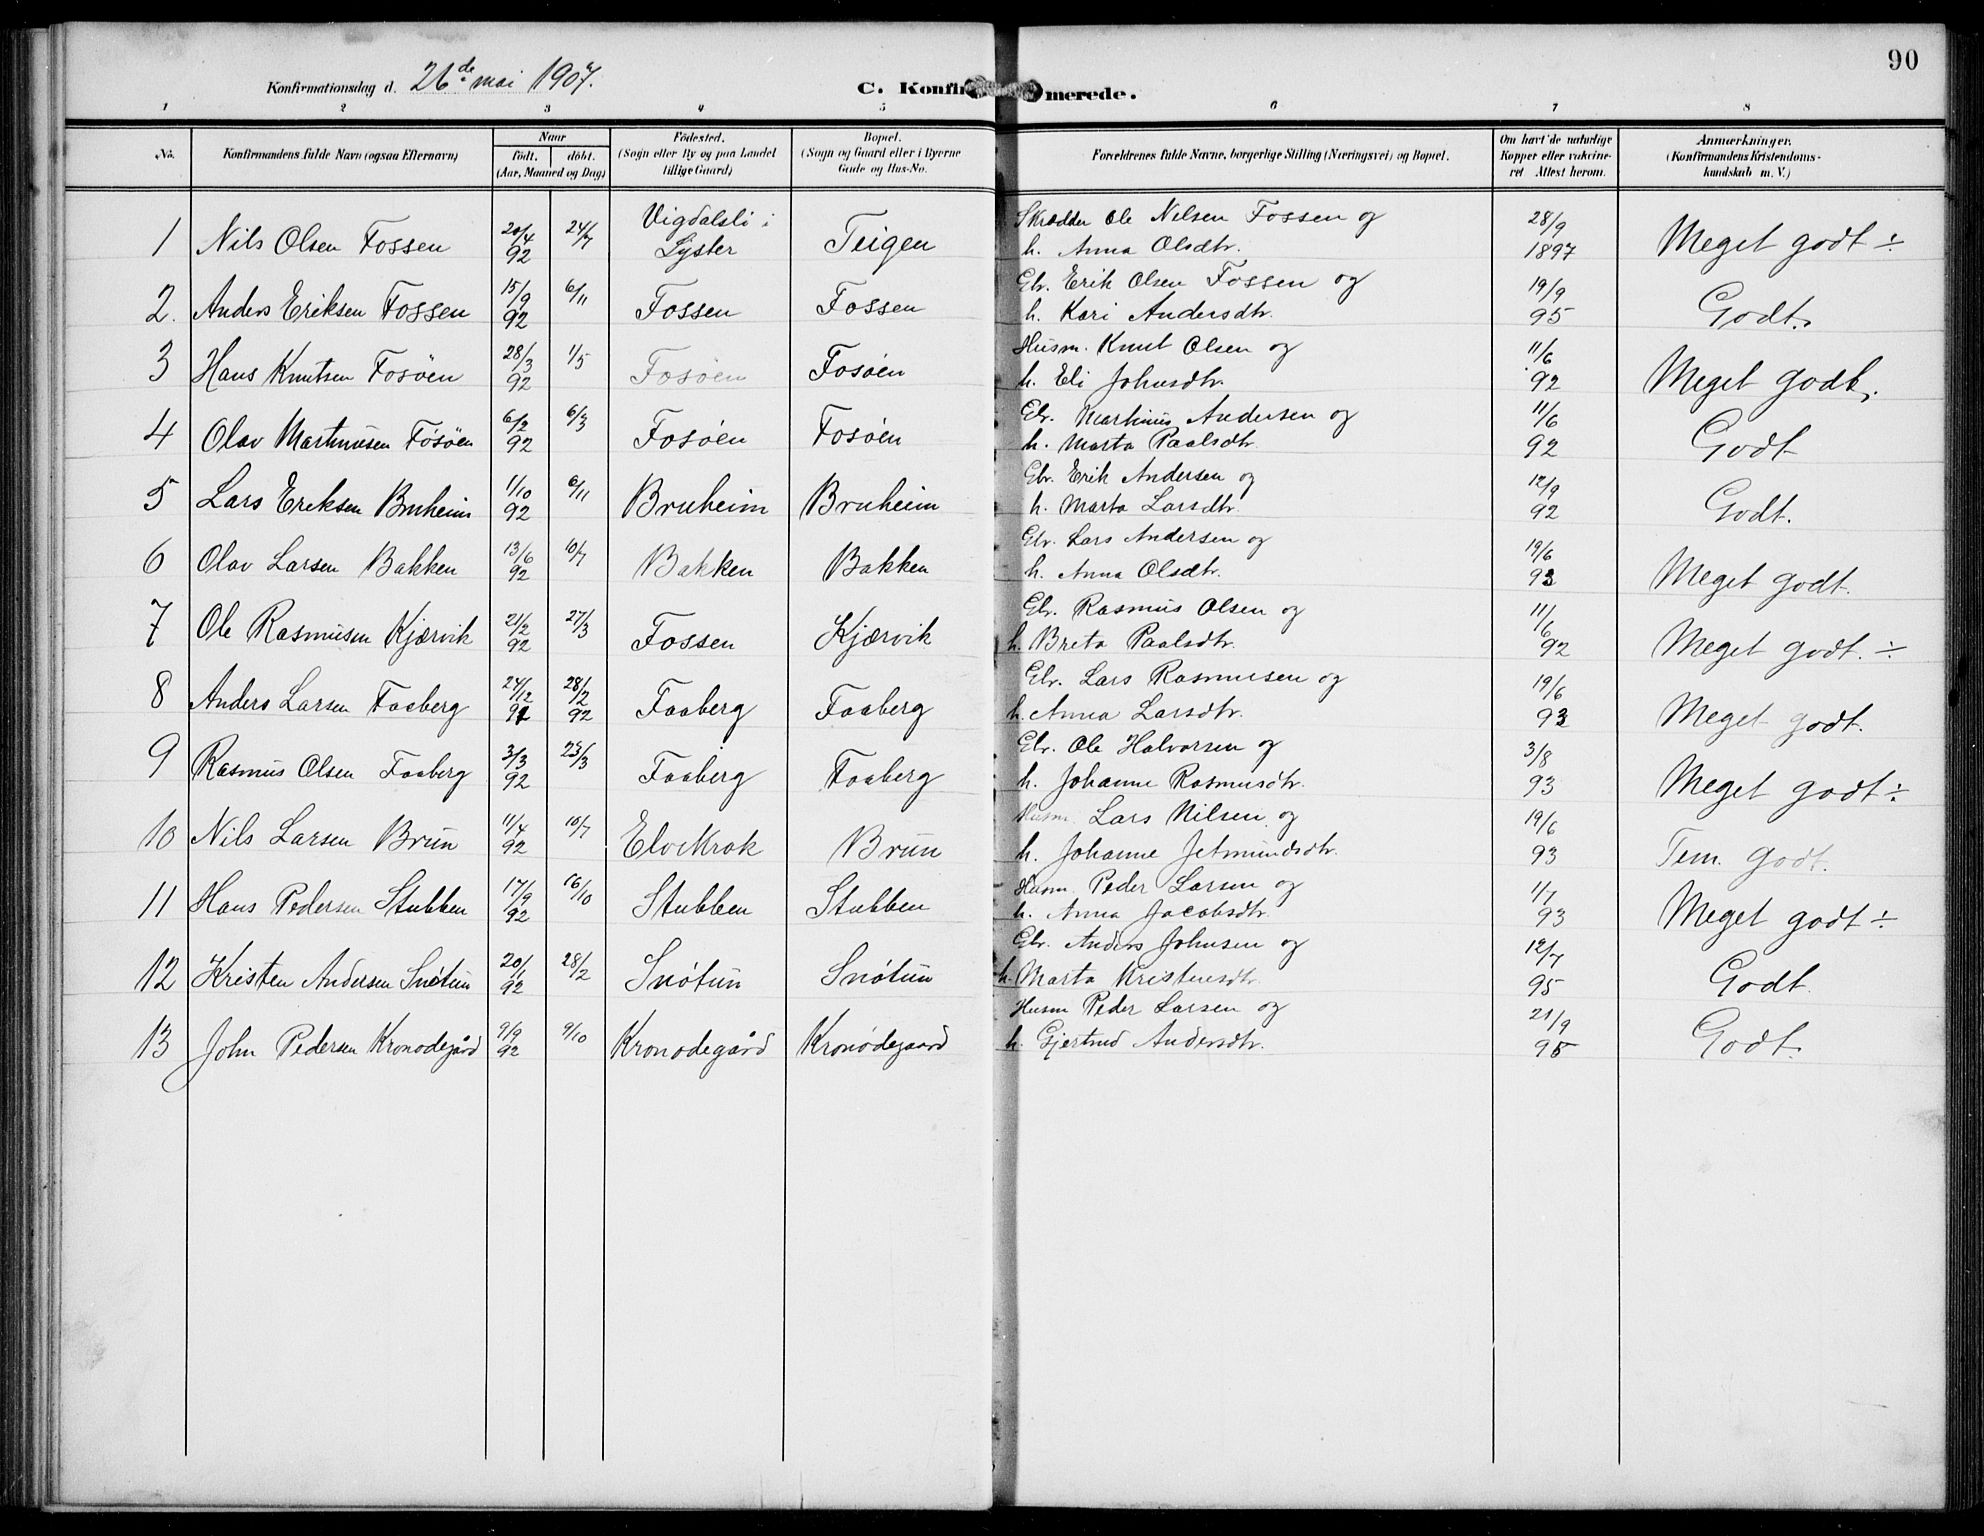 90
Konfirmationsdag d. 26de mai 1907.
C. Konfirmerede.
1 2 3 4 5 6 7 8
No. Konfirmandens fulde Navn (ogsaa Efternavn) Naar født. døbt. (Aar, Maaned og Dag) Fødested. (Sogn eller By og paa Landet tillige Gaard) Bopæl. (Sogn og Gaard eller i Byerne Gade og Hus-No. Forældrenes fulde Navne, borgerlige Stilling (Næringsvei) og Bopæl. Om havt de naturlige Kopper eller vakcineret. Attest herom. Anmærkninger. (Konfirmandens Kristendomskundskab m. V.)
1 Nils Olsen Fossen 20/4 92 24/7 Vigdalsli i Lyster Teigen Skrædder Ole Nelsen Fossen og h. Anna Olsdtr. 28/9 1897 Meget godt ÷
2. Anders Eriksen Fossen 15/9 92 6/11 Fossen Fossen Gbr. Erik Olsen Fossen og h. Kari Andersdtr. 19/9 95 Godt.
3 Hans Knutsen Fosøen 28/3 92 1/5 Fosøen Fosøen Husm. Knut Olsen og h. Eli Johnsdtr. 11/6 92 Meget godt.
4 Olav Martinusen Fosøen 6/2 92 6/3 Fosøen Fosøen Gbr. Martinus Andersen og h. Marta Paalsdtr. 11/6 92 Godt
5 Lars Eriksen Bruheim 11/10 92 6/11 Bruheim Bruheim Gbr. Erik Andersen og h. Marta Larsdtr. 12/9 92 Godt.
6 Olav Larsen Bakken 13/6 92 10/7 Bakken Bakken Gbr. Lars Andersen og h. Anna Olsdtr. 19/6 93 Meget godt.
7 Ole Rasmusen Kjærvik 21/2 92 27/3 Fossen Kjærvik Gbr. Rasmus Olsen og h. Breta Paalsdtr. 11/6 92 Meget godt. ÷
8 Anders Larsen Faaberg 24/12 91 28/2 92 Faaberg Faaberg Gbr. Lars Rasmusen og h. Anna Larsdtr. 19/6 93 Meget godt.
9 Rasmus Olsen Faaberg 3/3 92 23/3 Faaberg Faaberg Gbr. Ole Halvorsen og h. Johanne Rasmusdtr. 3/8 93 Meget godt ÷
10 Nils Larsen Brun 11/4 92 10/7 Elvekrok Brun Husm. Lars Nilsen og h. Johanne Jetmundsdtr. 19/6 93 Tem. godt.
11 Hans Pedersen Stubben 17/9 92 16/10 Stubben Stubben Husm. Peder Larsen og h. Anna Jacobsdtr. 11/7 93 Meget godt ÷
12 Kristen Andersen Snøtun 20/1 92 28/2 Snøtun Snøtun Gbr. Anders Johnsen og h. Marta Kristensdtr. 12/7 95 Godt.
13 John Pedersen Kronodegård 9/9 92 9/10 Kronodegård Kronødegaard Husm Peder Larsen og h. Gjertrud Andersdtr. 21/9 95 Godt.